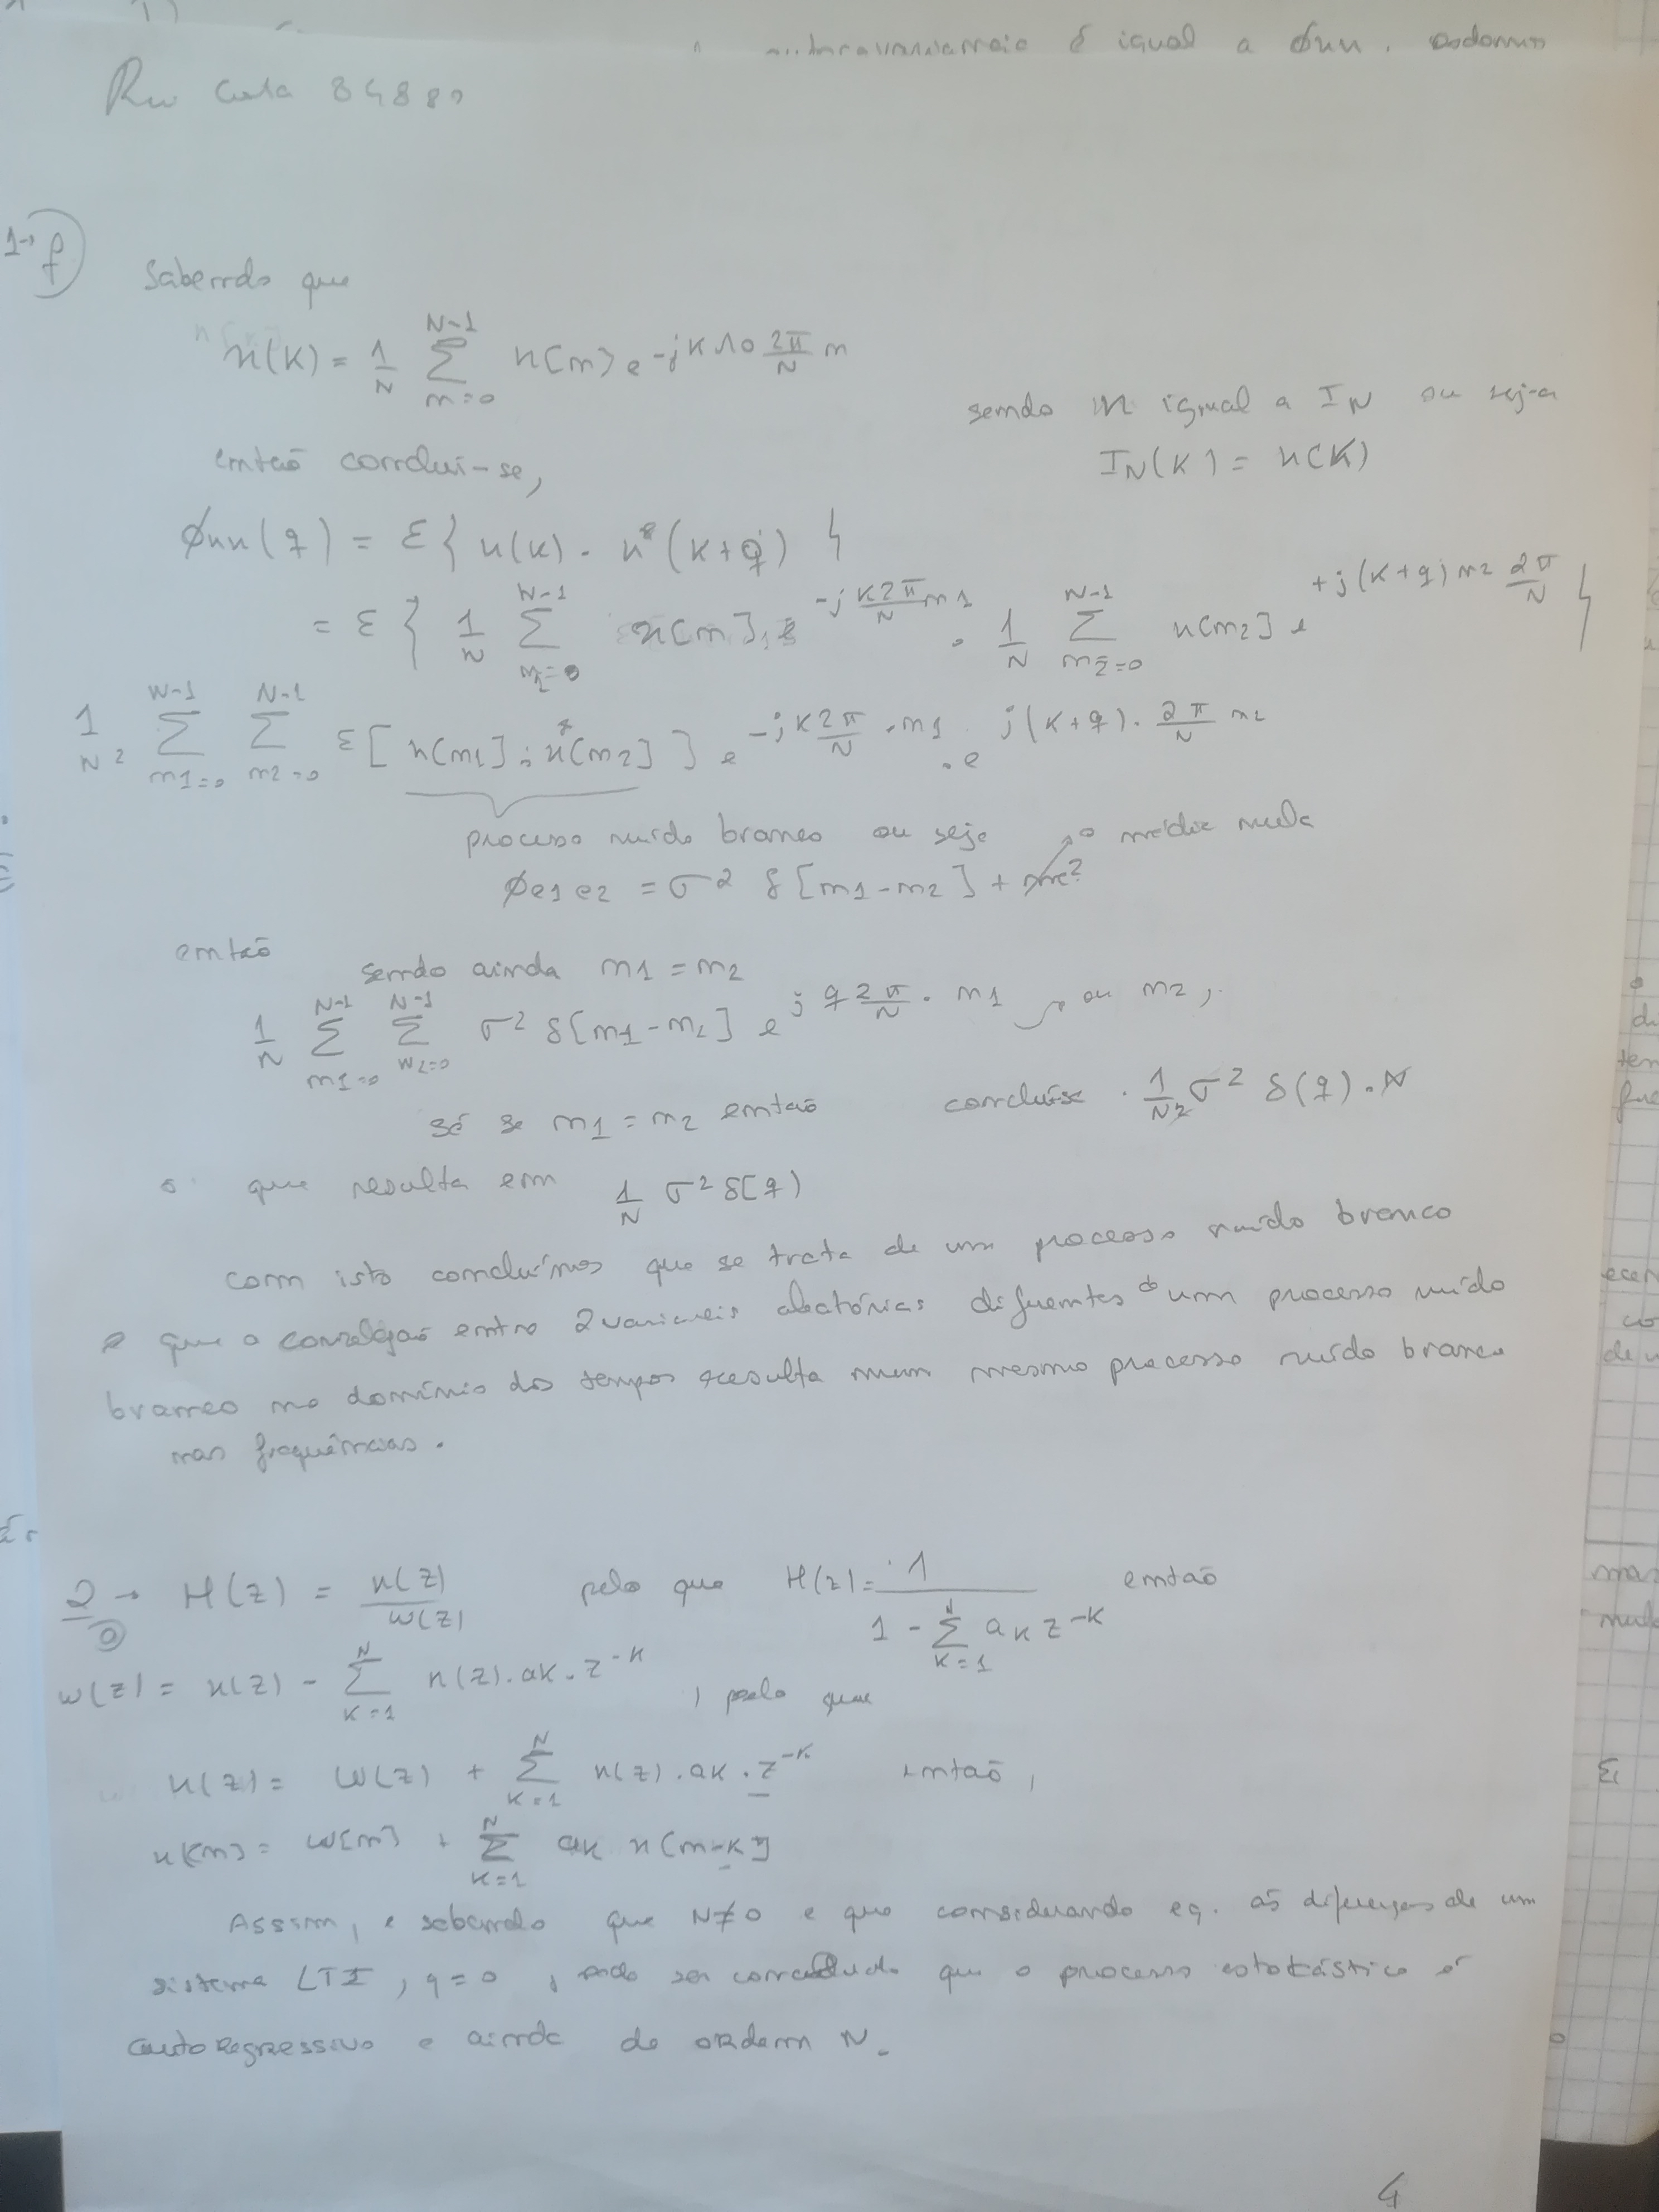 é igual a ϕnn.
Rui Costa 84880
1→ f)
Sabendo que
x(K) = 1/N Σ_{n=0}^{N-1} x[n] e^{-jK 2π/N n}
sendo n igual a IN ou seja
então conclui-se,
IN(K) = x(K)
ϕxx(q) = ε{ x(k) . x*(k+q) }
= ε{ 1/N Σ_{n1=0}^{N-1} x[n]1 e^{-j K2π/N n1} . 1/N Σ_{n2=0}^{N-1} x[n2] e^{+j(K+q) n2 2π/N} }
1/N² Σ_{n1=0}^{N-1} Σ_{n2=0}^{N-1} ε[ x[n1] ; x*[n2] ] e^{-jK 2π/N . n1} . e^{j(K+q) . 2π/N n2}
processo ruído branco ou seja → 0 média nula
ϕe1e2 = σ² δ[n1-n2] + me²
então
sendo ainda n1 = n2
1/N Σ_{n1=0}^{N-1} Σ_{n2=0}^{N-1} σ² δ[n1-n2] e^{j q 2π/N . n1} → ou n2,
só se n1 = n2 então conclui-se . 1/N² σ² δ(q) . N
o que resulta em 1/N σ² δ[q)
Com isto concluímos que se trata de um processo ruído branco
e que a correlação entre 2 variaveis aleatórias diferentes de um processo ruído
branco no domínio dos tempos resulta num mesmo processo ruído branco
nas frequências.
2 → H(z) = x(z)/w(z) pelo que H(z) = 1/(1 - Σ_{K=1}^{N} aK z^{-K}) então
a)
w(z) = x(z) - Σ_{K=1}^{N} x(z) . aK . z^{-K} , pelo que
x(z) = W(z) + Σ_{K=1}^{N} x(z) . aK . z^{-K} então,
x[n] = W[n] + Σ_{K=1}^{N} aK x[n-K]
Assim, e sabendo que N≠0 e que considerando eq. ás diferenças de um
sistema LTI, q=0, pode ser concluido que o processo estotástico é
autoRegressivo e ainda de ordem N.
4